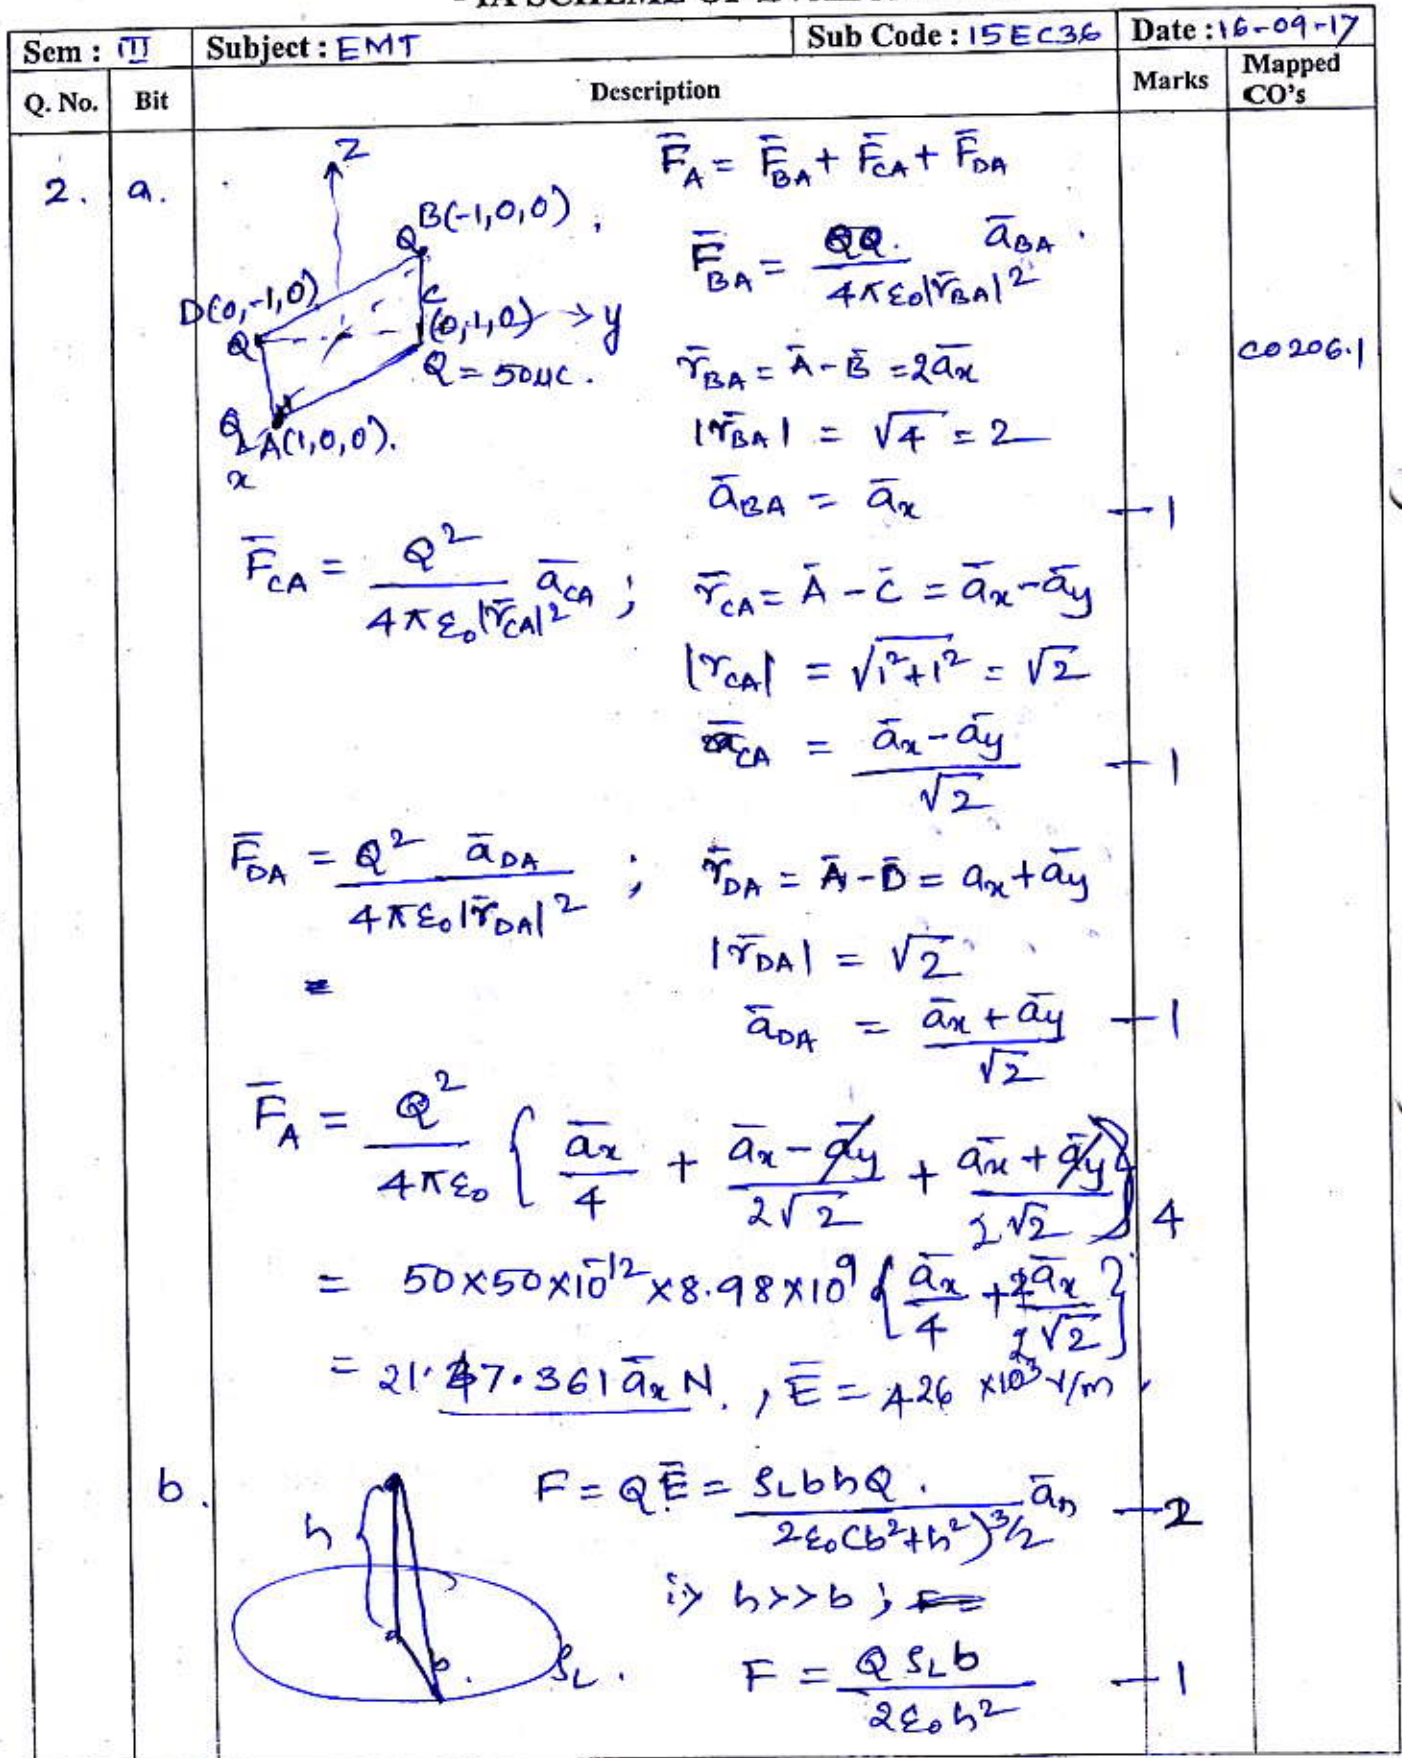 Sem : III Subject : EMT Sub Code : 15EC36 Date : 16-09-17
Q. No. Bit Description Marks Mapped CO's
2. a.
z
Q B(-1,0,0)
D(0,-1,0)
Q
C (0,1,0) → y
Q = 50μC.
Q A(1,0,0).
x
F̄_A = F̄_BA + F̄_CA + F̄_DA
F̄_BA = QQ / 4πε₀|r̄_BA|² ā_BA
CO206.1
r̄_BA = Ā - B̄ = 2ā_x
|r̄_BA| = √4 = 2
ā_BA = ā_x — 1
F̄_CA = Q² / 4πε₀|r̄_CA|² ā_CA ; r̄_CA = Ā - C̄ = ā_x - ā_y
|r_CA| = √(1²+1²) = √2
ā_CA = (ā_x - ā_y) / √2 — 1
F̄_DA = Q² ā_DA / 4πε₀|r̄_DA|² ; r̄_DA = Ā - D̄ = a_x + ā_y
|r̄_DA| = √2
=
ā_DA = (ā_x + ā_y) / √2 — 1
F̄_A = Q² / 4πε₀ { ā_x / 4 + (ā_x - ā_y) / 2√2 + (ā_x + ā_y) / 2√2 } 4
= 50×50×10⁻¹² × 8.98×10⁹ { ā_x / 4 + 2ā_x / 2√2 }
= 21.  7.361 ā_x N. , Ē = 426 ×10³ V/m
b.
h
b.
ρ_L .
F = QĒ = ρ_L b h Q / 2ε₀(b²+h²)^3/2 ā_n — 2
i> h>>b ; F=
F = Q ρ_L b / 2ε₀h² — 1